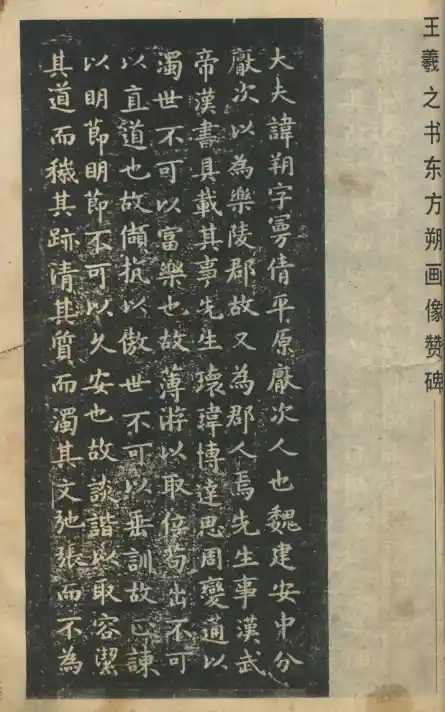 王羲之书东方朔画像赞碑
大夫諱朔字曼倩平原厭次人也魏建安中分
厭次以為樂陵郡故又為郡人焉先生事漢武
帝漢書具載其事先生瓌瑋博達思周變通以
濁世不可以富樂也故薄游以取位苟出不可
以直道也故傾抗以傲世不可以垂訓故正諫
以明節明節不可以久安也故談諧以取容潔
其道而穢其跡清其質而濁其文弛張而不為